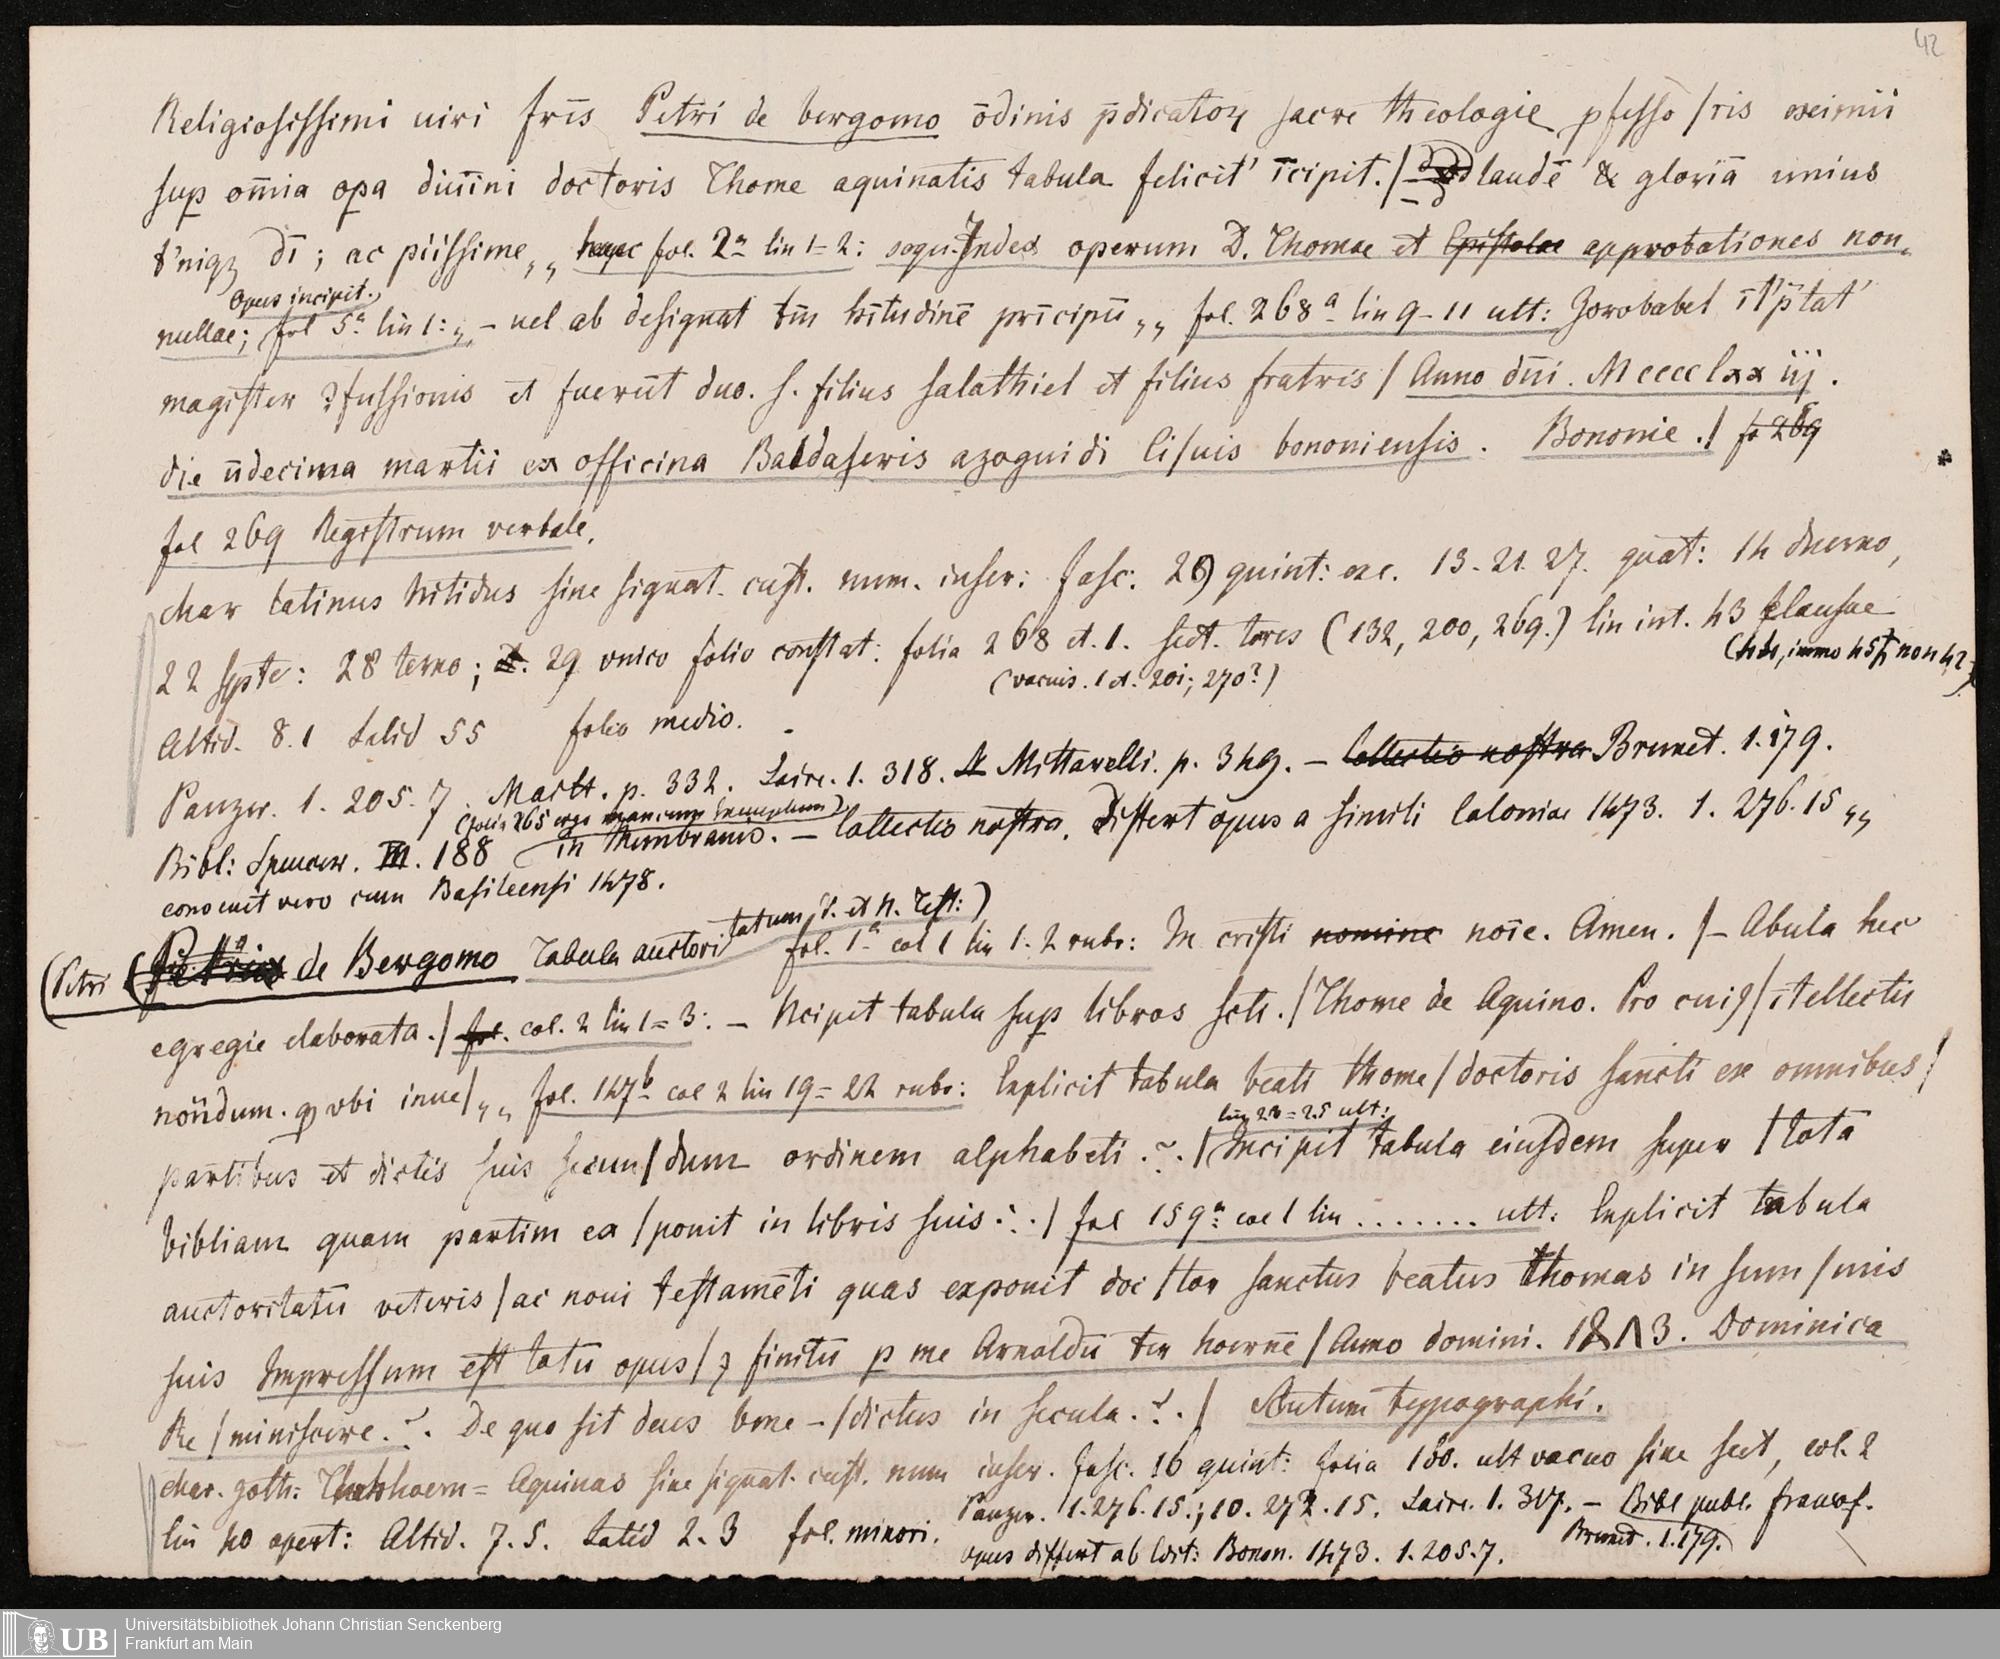 42
Religiosissimi uiri fr̄is Petri de bergomo ōdinis p̄dicatoꝝ sacre theologie pfesso / ris eximii
sup om̄ia opa diuini doctoris Thome aquinatis tabula felicit' īcipit. / laudē & gloriā unius
t'niqꝫ dī ; ac piissime „ fol. 2a lin 1-2: sequ. Index operum D. Thomae et Epistolae approbationes non-
Opus incipit.
nullae; fol 5a lin 1: „ - uel ab designat fol. 268a lin 9-11 ult: Zorobabel
magister ꝯfussionis et fuerūt duo. s. filius salathiel et filius fratris / Anno dn̄i . Mcccclxxiij .
die ūdecima martii ex officina Baldaseris azoguidi Ci/uis bononiensis . Bononie . / fo 269
fol 269 Registrum verbale.
char latinus nitidus sine signat. cust. num. inser: fasc: 29 quint: exc. 13-21. 27. quat: 14 duerno,
22 septe: 28 terno; 29 unico folio constat: folia 268 et. 1. sect. tres (132, 200, 269.) lin int. 43 clausae
(vacuis. 1 et: 201; 270?)
Altid. 8.1 Latid 55 folio medio.
Panzer. 1. 205. 7. Maitt. p. 332. Laire. 1. 318. Mittarelli. p. 349. - Collectio nostra Brunet. 1. 179.
(folia 265 ergo mancum exemplum)
Bibl: Spencer. III. 188 in Membranis. - Collectio nostra. Differt opus a simili Coloniae 1473. 1. 276. 15 „
convenit vero cum Basileensi 1478.
(Petri de Bergomo Tabula auctoritatum V. et N. Test:) fol. 1a col 1 lin 1-2 rubr: In cristi nomine noīe. Amen. /- Abula hec
egregie elaborata. / fol. col. 2 lin 1=3: - Ncipit tabula sup libros scti. / Thome de Aquino. Pro cuiꝯ / ītellectu
nōndum. ꝙ vbi inue/ „ fol. 147b col 2 lin 19=22 rubr: Explicit tabula beati thome / doctoris sancti ex omnibus /
lin 23=25 ult:
partibus et dictis suis secun / dum ordinem alphabeti . / Incipit tabula eiusdem super / totā
bibliam quam partim ex / ponit in libris suis . / fol 159a: col 1 lin ....... ult: Explicit tabula
auctoritatū veteris / ac noui testamēti quas exponit doc / tor sanctus beatus thomas in sum / mis
suis Impressum est totū opus / ꝫ finitū p me Arnoldū ter hoernē / Anno domini. 1873. Dominica
Re / miniscere . De quo sit deus bene - / dictus in secula . / Scutum typographi.
char. goth: Therhoern = Aquinas sine signat. cust. num inser. fasc. 16 quint: folia 160. ult vacuo sine sect, col. 2
lin 40 apert: Altid. 7. 5. Latid 2. 3 fol. minori. Panzer. 1. 276. 15.; 10. 272. 15. Laire. 1. 317. - Bibl publ. francof.
opus differt ab Edit: Bonon. 1473. 1. 205. 7. Brunet. 1. 179.
Universitätsbibliothek Johann Christian Senckenberg
UB Frankfurt am Main